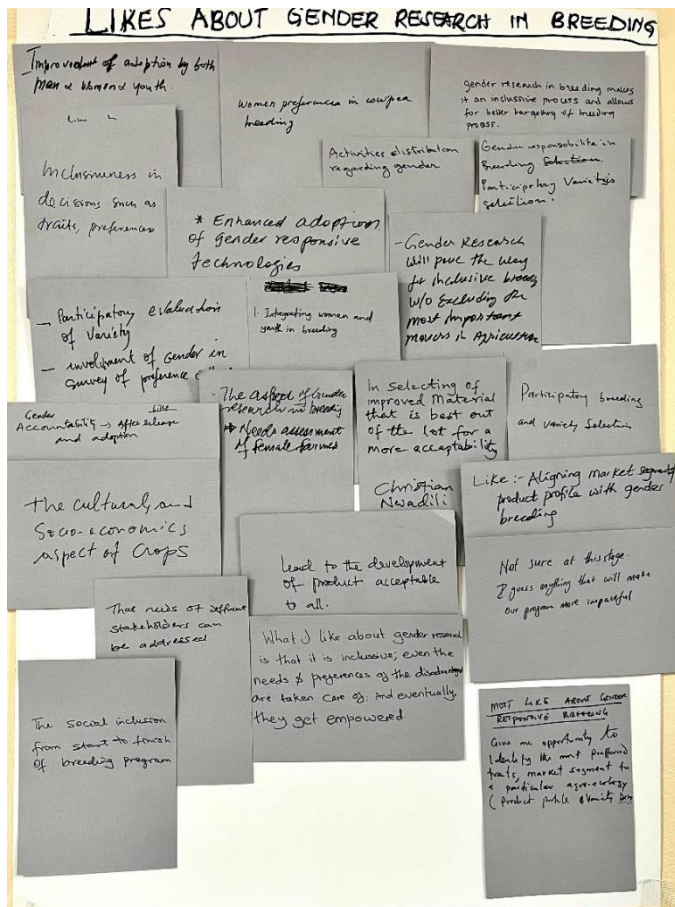 LIKES ABOUT GENDER RESEARCH IN BREEDING
Improvement of adoption by both
men & women & youth.
Women preferences in cowpea
breeding
Gender research in breeding makes
it an inclusive process and allows
for better targeting of breeding
process.
Inclusiveness in
decisions such as
traits, preferences
Activities distribution
regarding gender.
Gender responsabilite in
Breeding Selection
Participatory Varietys
selection.
* Enhanced adoption
of gender responsive
technologies
- Gender Research
will pave the way
for inclusive breedg
w/o Excluding the
most important
movers in Agriculture
- Participatory evaluation
of Variety
- involvment of Gender in
Survey of preference
1. Integrating women and
youth in breeding
- The aspect of Gender
research in breeding
→ Needs assessment
of female farmers
In selecting of
improved Material
that is best out
of the lot for a
more acceptability
Christian
Nwadili
Participatory breeding
and variety Selection
Gender Like
Accountability → after release
and adoption
The cultural and
Socio-economics
aspect of Crops
Like :- Aligning market segments
product profile with gender
breeding
Lead to the development
of product acceptable
to all.
Not sure at this stage.
I guess anything that will make
our program more impactful
That needs of different
stakeholders can
be addressed
What I like about gender research
is that it is inclusive; even the
needs & preferences of the disadvantaged
are taken care of; And eventually,
they get empowered.
The social inclusion
from start to finish
of breeding program
MOST LIKE ABOUT GENDER
RESPONSIVE BREEDING
Give me opportunity to
Identify the most preffered
traits, market segment for
a particular agro-ecology
(Product profile & Variety